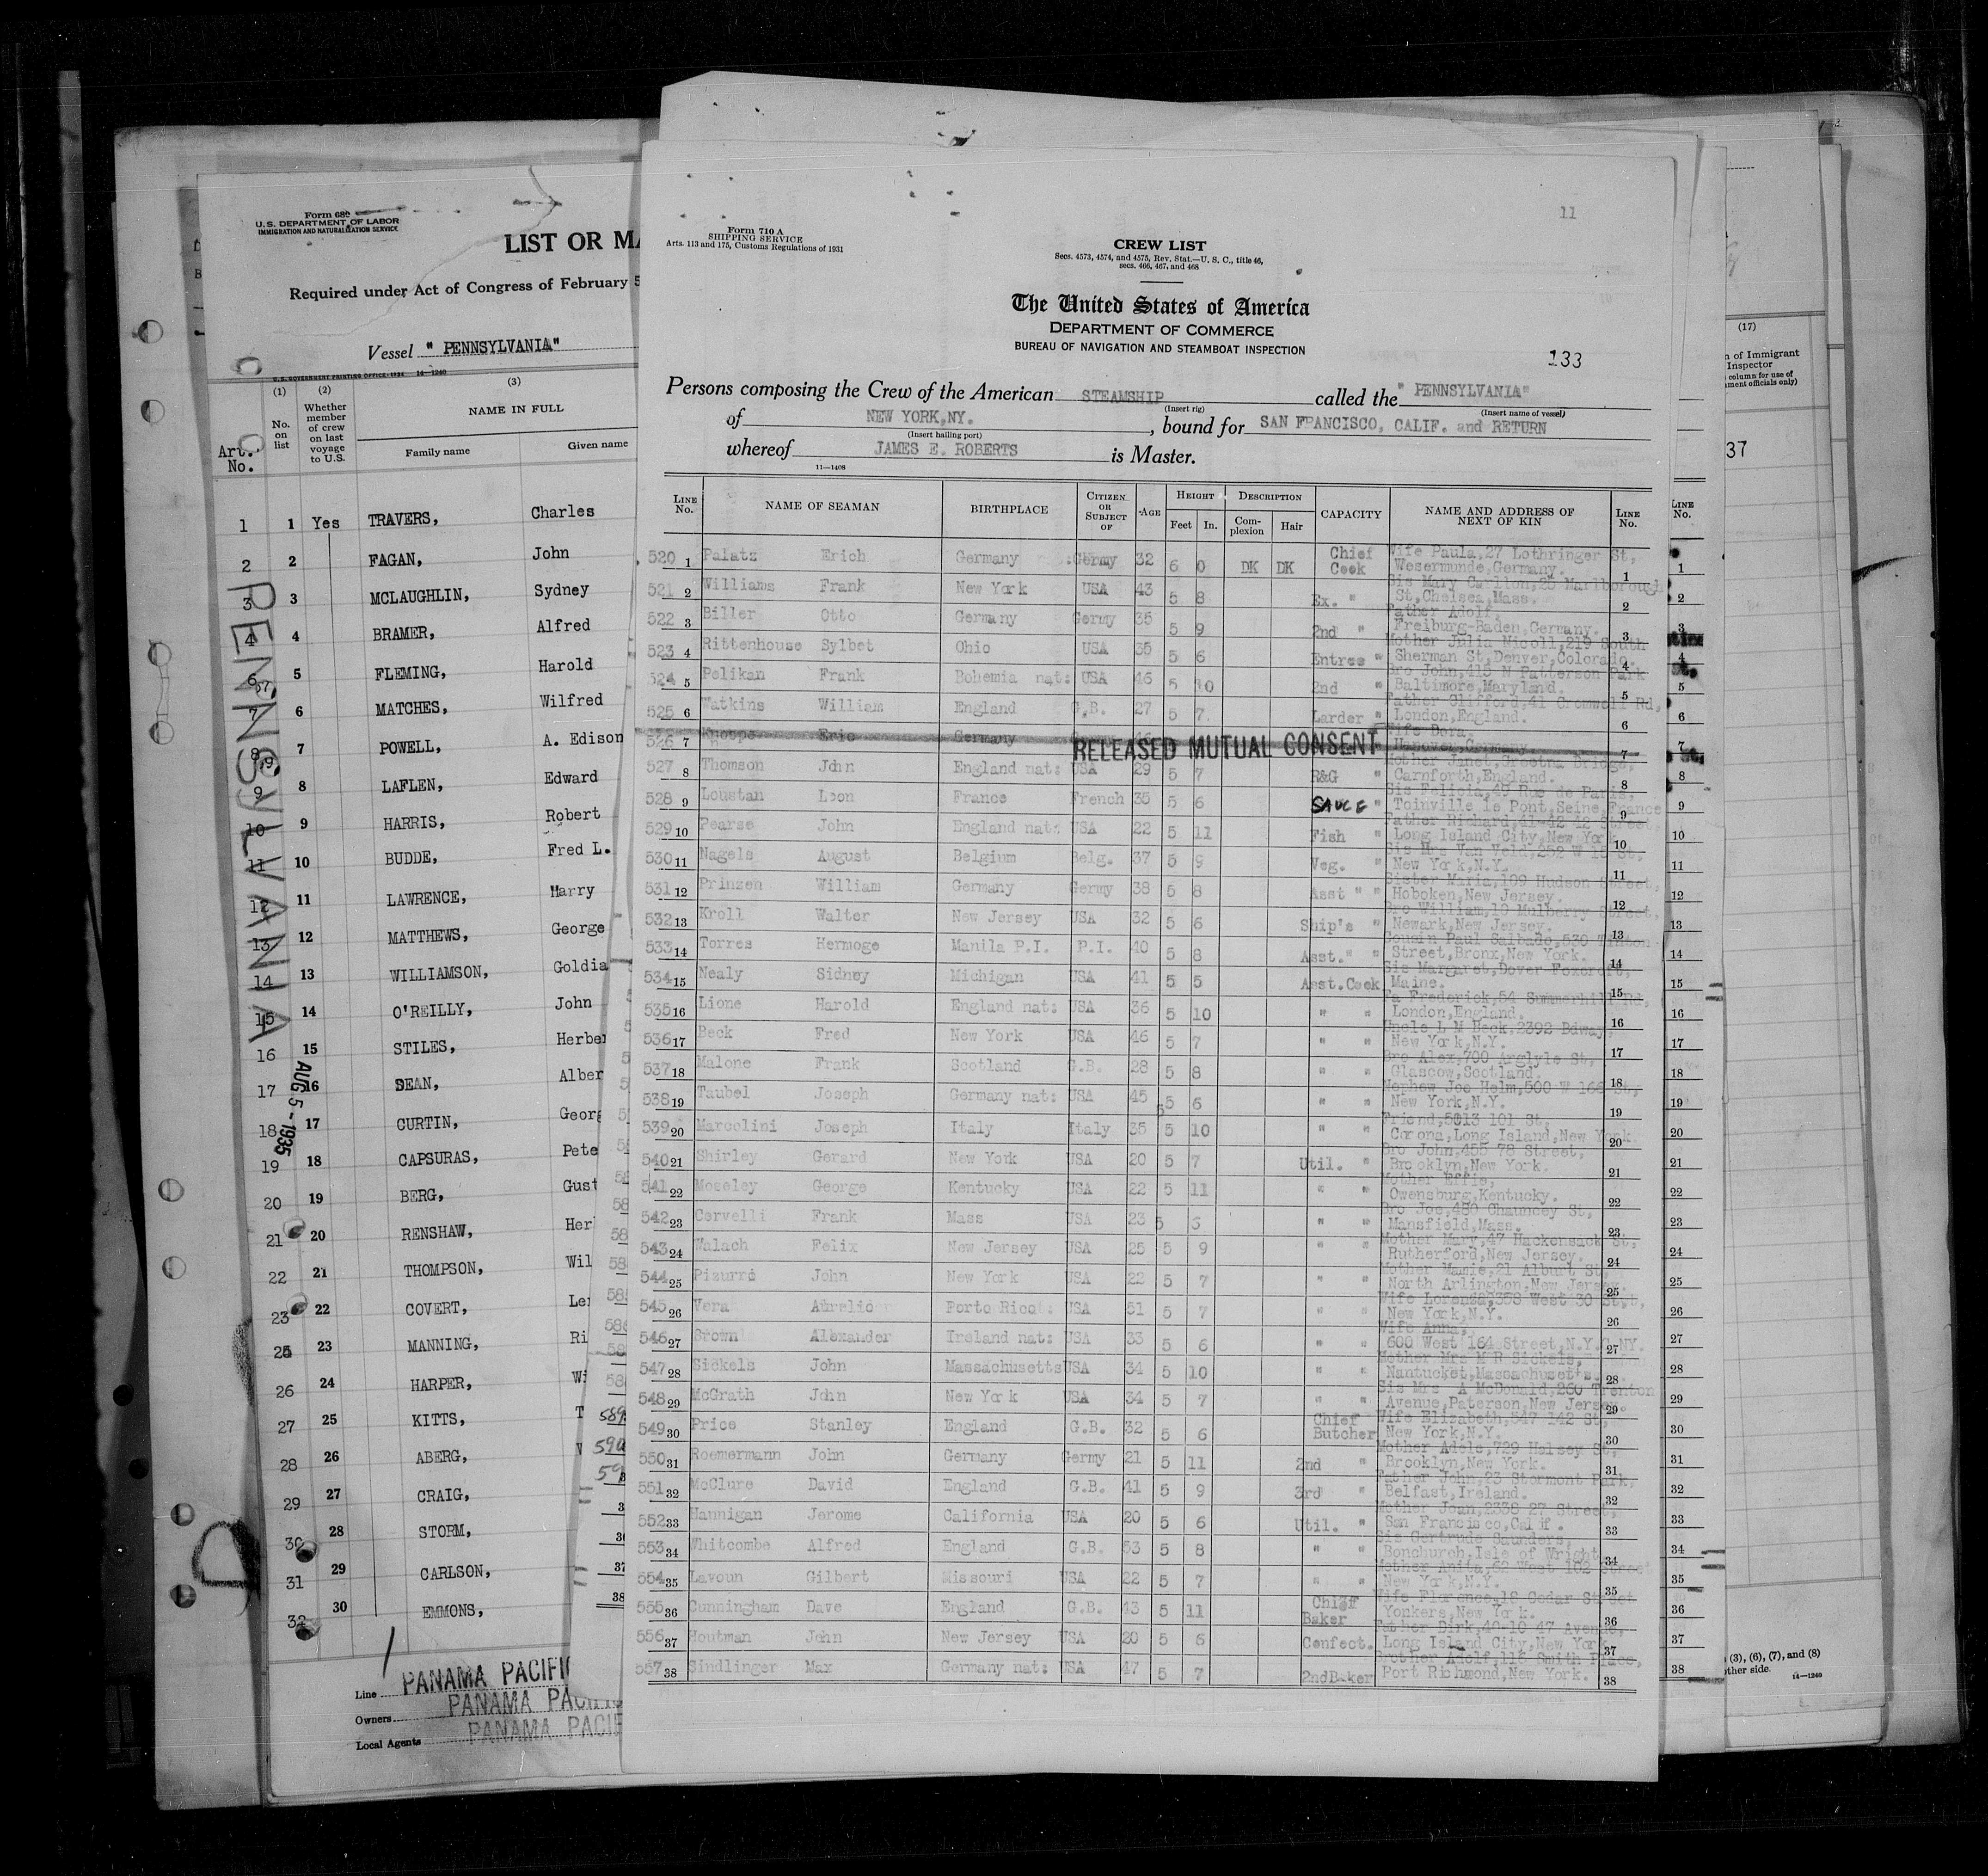 Form 680
U.S. DEPARTMENT OF LABOR
IMMIGRATION AND NATURALIZATION SERVICE
LIST OR MA
Required under Act of Congress of February 5
Vessel " PENNSYLVANIA"
U.S. GOVERNMENT PRINTING OFFICE: 1934 14—1240
(1) (2) (3)
Art. No.
No. on list
Whether member of crew on last voyage to U.S.
NAME IN FULL
Family name Given name
1 1 Yes TRAVERS, Charles
2 2 FAGAN, John
3 3 MCLAUGHLIN, Sydney
4 4 BRAMER, Alfred
6 5 FLEMING, Harold
7 6 MATCHES, Wilfred
8 7 POWELL, A. Edison
9 8 LAFLEN, Edward
10 9 HARRIS, Robert
11 10 BUDDE, Fred L.
12 11 LAWRENCE, Harry
13 12 MATTHEWS, George
14 13 WILLIAMSON, Goldia
15 14 O'REILLY, John
16 15 STILES, Herber
17 16 DEAN, Alber
18 17 CURTIN, Georg
19 18 CAPSURAS, Pete
20 19 BERG, Gust
21 20 RENSHAW, Her
22 21 THOMPSON, Wil
23 22 COVERT, Le
25 23 MANNING, Ri
26 24 HARPER, Wi
27 25 KITTS, T
28 26 ABERG,
29 27 CRAIG,
30 28 STORM,
31 29 CARLSON,
32 30 EMMONS,
PENNSYLVANIA
AUG 5 - 1935
Line PANAMA PACIFIC
Owners PANAMA PACIFI
Local Agents PANAMA PACIF
11
Form 710 A
SHIPPING SERVICE
Arts. 113 and 175, Customs Regulations of 1931
CREW LIST
Secs. 4573, 4574, and 4575, Rev. Stat.—U. S. C., title 46,
secs. 466, 467, and 468
The United States of America
DEPARTMENT OF COMMERCE
BUREAU OF NAVIGATION AND STEAMBOAT INSPECTION
133
Persons composing the Crew of the American STEAMSHIP called the " PENNSYLVANIA"
(Insert rig) (Insert name of vessel)
of NEW YORK,NY. , bound for SAN FRANCISCO, CALIF. and RETURN
(Insert hailing port)
whereof JAMES E. ROBERTS is Master.
11—1408
LINE No. NAME OF SEAMAN BIRTHPLACE CITIZEN OR SUBJECT OF AGE HEIGHT DESCRIPTION CAPACITY NAME AND ADDRESS OF NEXT OF KIN LINE No.
Feet In. Complexion Hair
520 1 Palatz Erich Germany Germy 32 6 0 DK DK Chief Cook Wife Paula,27 Lothringer St, Wesermunde,Germany. 1
521 2 Williams Frank New York USA 43 5 8 Ex. " Sis Mary Carllon,25 Marlborough St,Chelsea,Mass. 2
522 3 Biller Otto Germany Germy 35 5 9 2nd " Father Adolf, Freiburg-Baden,Germany. 3
523 4 Rittenhouse Sylbet Ohio USA 35 5 6 Entree " Mother Julia Nicoll,219 South Sherman St,Denver,Colorado. 4
524 5 Pelikan Frank Bohemia nat: USA 46 5 10 2nd " Bro John,415 N Patterson Park Baltimore,Maryland. 5
525 6 Watkins William England G.B. 27 5 7 Larder " Father Clifford,41 Cromwell Rd, London,England. 6
526 7 Eric Germany RELEASED MUTUAL CONSENT Wife Dora, Hanover,Germany. 7
527 8 Thomson John England nat: USA 29 5 7 R&G " Mother Janet, Bridge, Carnforth,England. 8
528 9 Loustan Leon France French 35 5 6 SAUCE " Sis Felicia,49 Rue de Paris, Toinville le Pont,Seine,France 9
529 10 Pearse John England nat: USA 22 5 11 Fish " Father Richard, Street, Long Island City,New York 10
530 11 Nagels August Belgium Belg. 37 5 9 Veg. " Sis Mrs Van Veld,252 W St, New York,N.Y. 11
531 12 Prinzen William Germany Germy 38 5 8 Asst " " Sister Maria,109 Hudson Street, Hoboken,New Jersey. 12
532 13 Kroll Walter New Jersey USA 32 5 6 Ship's " Bro William,19 Mulberry Street, Newark,New Jersey. 13
533 14 Torres Hermoge Manila P.I. P.I. 40 5 8 Asst." " Cousin Paul Salbado,530 Tinton Street,Bronx,New York. 14
534 15 Nealy Sidney Michigan USA 41 5 5 Asst.Cook Sis Margaret,Dover Foxcroft, Maine. 15
535 16 Lione Harold England nat: USA 36 5 10 " " Fa Frederick,54 Summerhill Rd, London,England. 16
536 17 Beck Fred New York USA 46 5 7 " " Uncle L M Beck,2392 Bdway, New York,N.Y. 17
537 18 Malone Frank Scotland G.B. 28 5 8 " " Bro Alex,700 Arglyle St, Glascow,Scotland. 18
538 19 Taubel Joseph Germany nat: USA 45 5 6 " " Nephew Joe Helm,500 W 166 St, New York,N.Y. 19
539 20 Marcolini Joseph Italy Italy 35 5 10 " " Friend,5013 101 St, Corona,Long Island,New York. 20
540 21 Shirley Gerard New York USA 20 5 7 Util. " Bro John,455 78 Street, Brooklyn,New York. 21
541 22 Moseley George Kentucky USA 22 5 11 " " Mother Effie, Owensburg,Kentucky. 22
542 23 Cervelli Frank Mass USA 23 5 6 " " Bro Joe,480 Chauncey St, Mansfield,Mass. 23
543 24 Walach Felix New Jersey USA 25 5 9 " " Mother Mary,47 Hackensack St, Rutherford,New Jersey. 24
544 25 Pizurro John New York USA 22 5 7 " " Mother Mamie,21 Alburt St, North Arlington,New Jersey. 25
545 26 Vera Aurelio Porto Rico: USA 51 5 7 " " Wife Lorensa,358 West 30 St., New York,N.Y. 26
546 27 Brown Alexander Ireland nat: USA 33 5 6 " " Wife Anna, 600 West 164 Street,N.Y.C.NY. 27
547 28 Sickels John Massachusetts USA 34 5 10 " " Mother Mrs M R Sickels, Nantucket,Massachusetts. 28
548 29 McGrath John New York USA 34 5 7 " " Sis Mrs A McDonald,260 Trenton Avenue,Paterson,New Jersey. 29
549 30 Price Stanley England G.B. 32 5 6 Chief Butcher Wife Elizabeth,547 142 St, New York,N.Y. 30
550 31 Roemermann John Germany Germy 21 5 11 2nd " Mother Adele,729 Halsey St, Brooklyn,New York. 31
551 32 McClure David England G.B. 41 5 9 3rd " Father John,23 Stormont Park, Belfast,Ireland. 32
552 33 Hannigan Jerome California USA 20 5 6 Util. " Mother Jean,2338 27 Street, San Francisco,Calif. 33
553 34 Whitcombe Alfred England G.B. 53 5 8 " " Sis Gertrude Saunders, Bonchurch,Isle of Wright 34
554 35 Lavoun Gilbert Missouri USA 22 5 7 " " Mother Anita,62 West 102 Street New York,N.Y. 35
555 36 Cunningham Dave England G.B. 43 5 11 Chief Baker Wife Florence,18 Cedar Street Yonkers,New York. 36
556 37 Houtman John New Jersey USA 20 5 6 Confect. Father Dirk,40-10 47 Avenue, Long Island City,New York 37
557 38 Sindlinger Max Germany nat: USA 47 5 7 2ndBaker Brother Adolf,115 Smith Place, Port Richmond,New York. 38
(17)
n of Immigrant
Inspector
column for use of
nment officials only)
37
(3), (6), (7), and (8)
other side. 14—1240